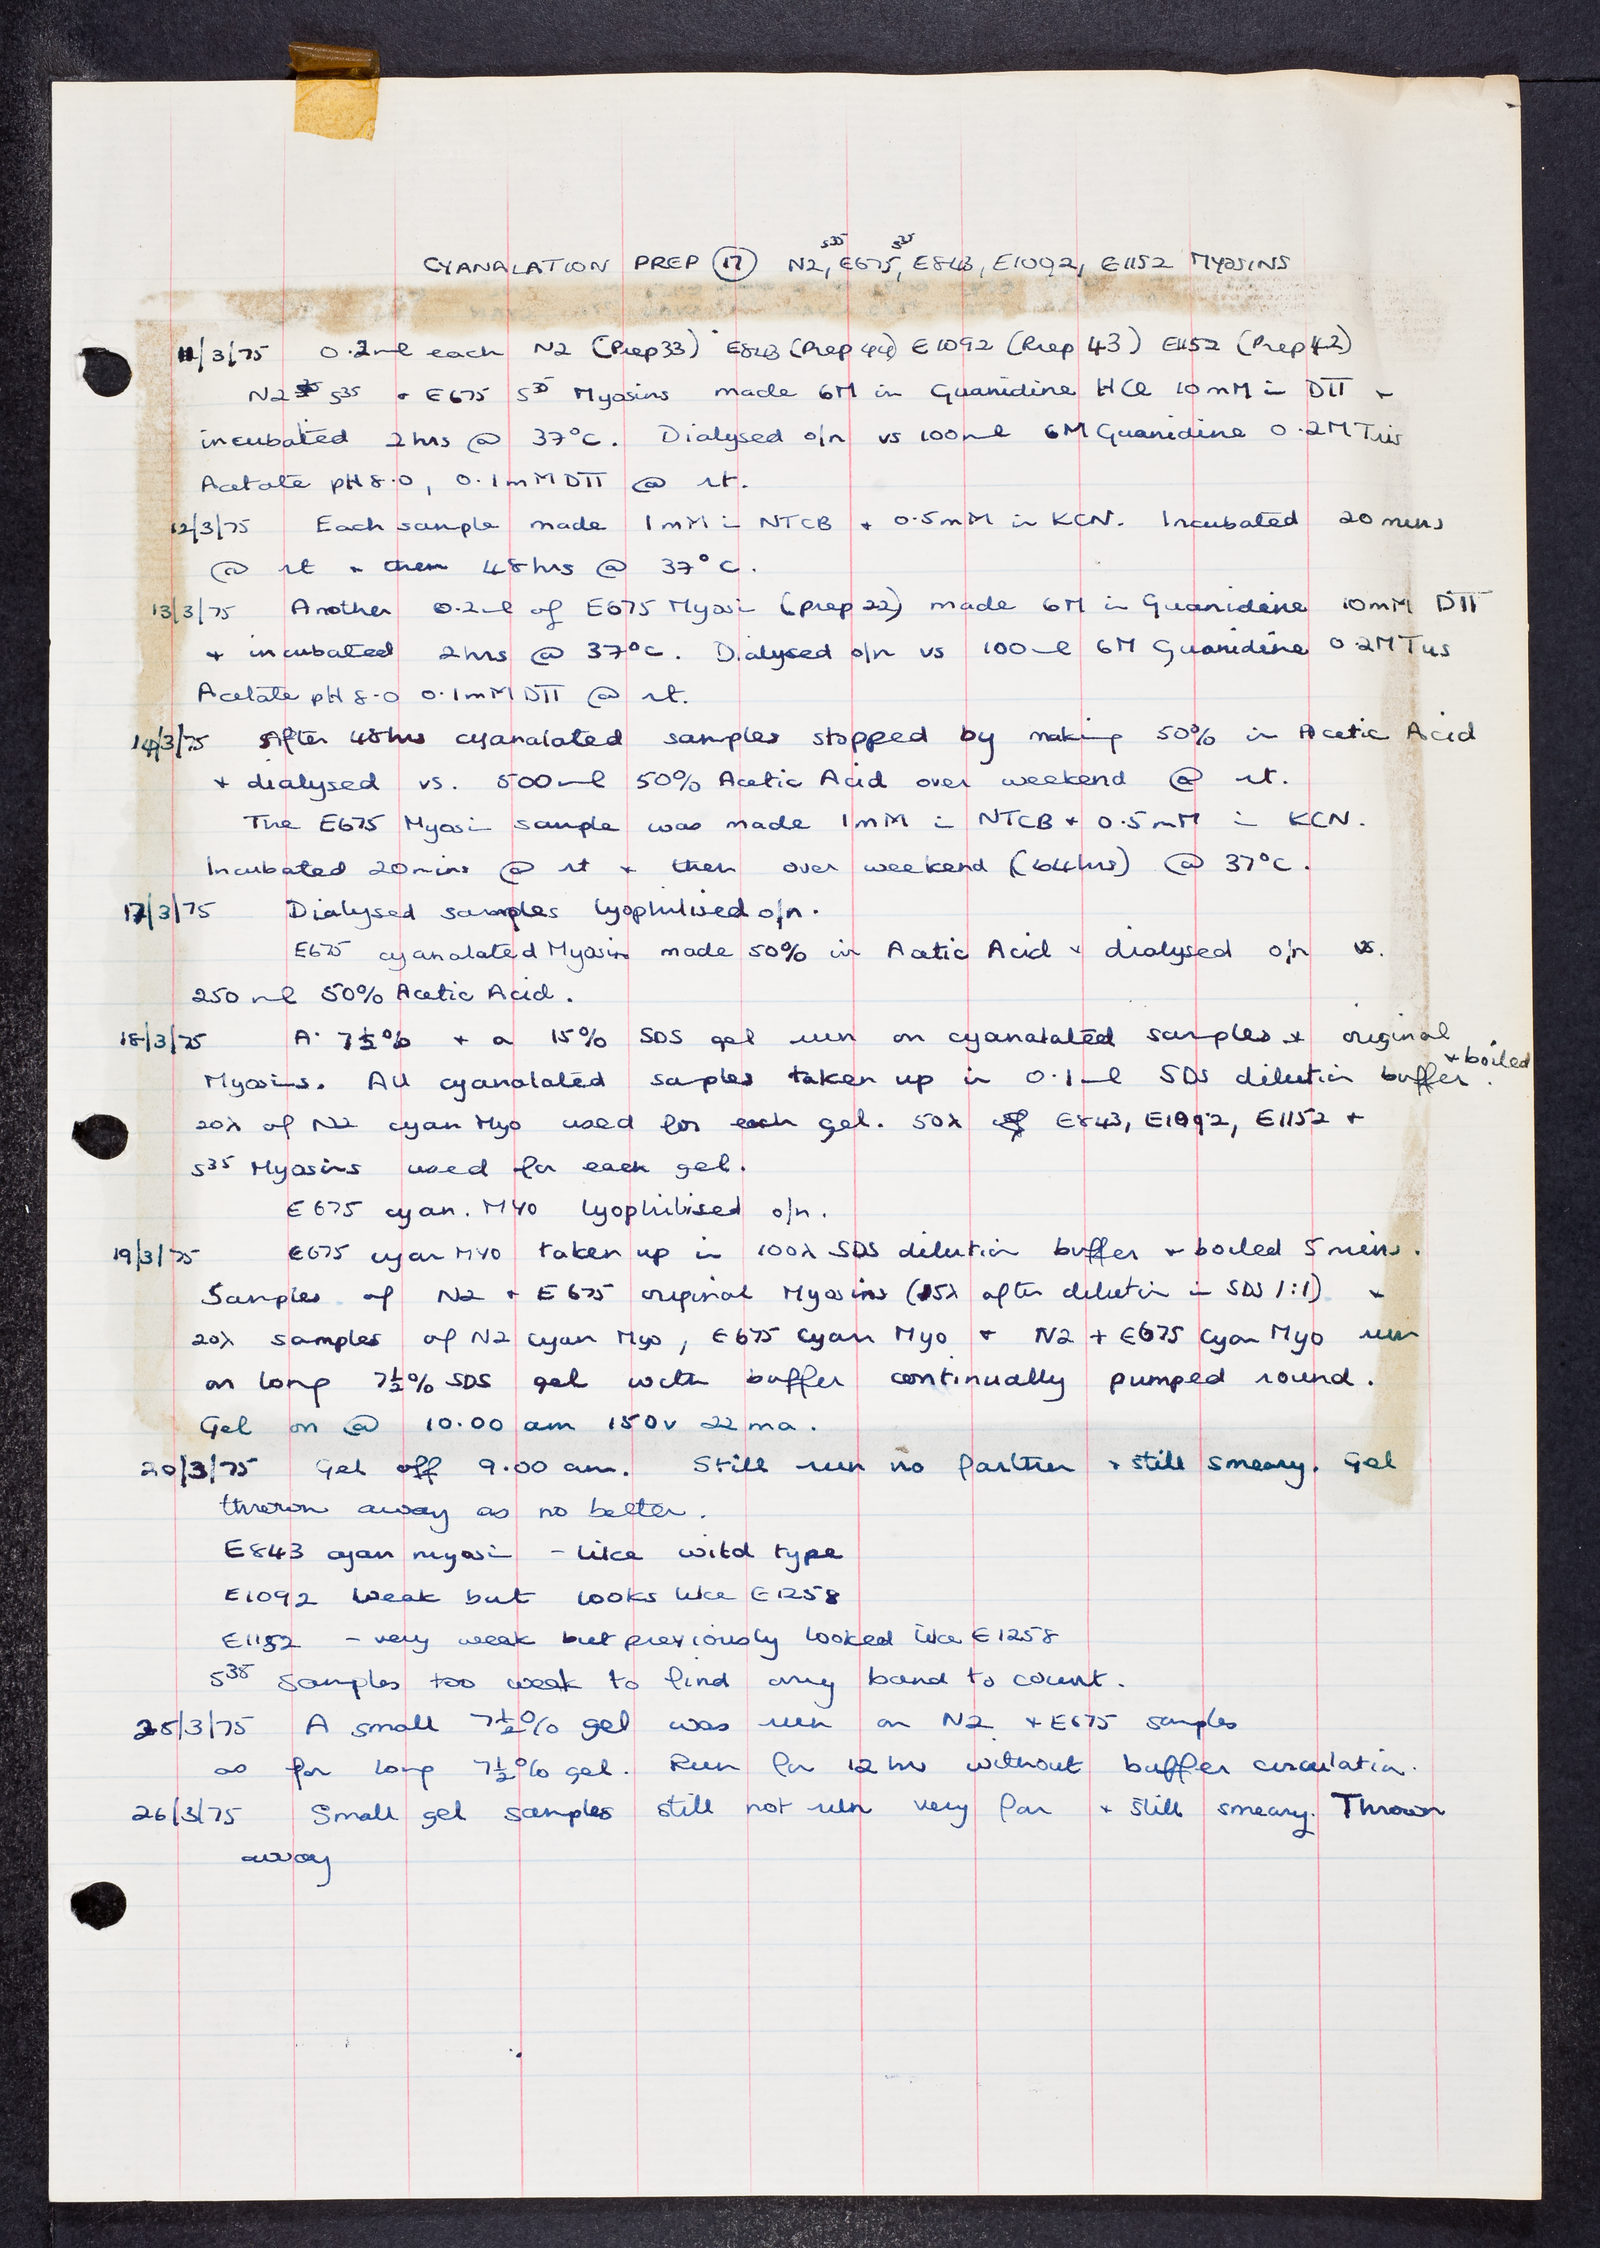 s35 s35
CYANALATION PREP 17 N2, E675, E843, E1092, E1152 MYOSINS
11/3/75 0.2ml each N2 (Prep33) E843 (Prep 44) E1092 (Prep 43) E1152 (Prep42)
N2 s35 + E675 s35 Myosins made 6M in Guanidine HCl 10mM in DTT +
incubated 2hrs @ 37°C. Dialysed o/n vs 100ml 6M Guanidine 0.2M Tris
Acetate pH 8.0, 0.1mM DTT @ rt.
12/3/75 Each sample made 1mM in NTCB + 0.5mM in KCN. Incubated 20 mins
@ rt + then 48hrs @ 37°C.
13/3/75 Another 0.2ml of E675 Myosin (prep 22) made 6M in Guanidine 10mM DTT
+ incubated 2hrs @ 37°C. Dialysed o/n vs 100ml 6M Guanidine 0.2M Tris
Acetate pH 8.0 0.1mM DTT @ rt.
14/3/75 After 48hrs cyanalated samples stopped by making 50% in Acetic Acid
+ dialysed vs. 500ml 50% Acetic Acid over weekend @ rt.
The E675 Myosin sample was made 1mM in NTCB + 0.5mM in KCN.
Incubated 20mins @ rt + then over weekend (64hrs) @ 37°C.
17/3/75 Dialysed samples lyophilised o/n.
E675 cyanalated Myosin made 50% in Acetic Acid + dialysed o/n vs.
250ml 50% Acetic Acid.
18/3/75 A 7½% + a 15% SDS gel run on cyanalated samples + original
Myosins. All cyanalated samples taken up in 0.1ml SDS dilution buffer + boiled.
20λ of N2 cyan Myo used for each gel. 50λ of E843, E1092, E1152 +
s35 Myosins used for each gel.
E675 cyan. MYO lyophilised o/n.
19/3/75 E675 cyan MYO taken up in 100λ SDS dilution buffer + boiled 5 mins.
Samples of N2 + E675 original Myosins (15λ after dilution in SDS 1:1) +
20λ samples of N2 cyan Myo, E675 cyan Myo + N2 + E675 cyan Myo run
on long 7½% SDS gel with buffer continually pumped round.
Gel on @ 10.00 am 150v 22ma.
20/3/75 Gel off 9.00 am. Still run no farther + still smeary. Gel
thrown away as no better.
E843 cyan myosin - like wild type
E1092 Weak but looks like E1258
E1152 - very weak but previously looked like E1258
s35 samples too weak to find any band to count.
25/3/75 A small 7½% gel was run on N2 + E675 samples
as for long 7½% gel. Run for 12 hrs without buffer circulation.
26/3/75 Small gel samples still not run very far + still smeary. Thrown
away